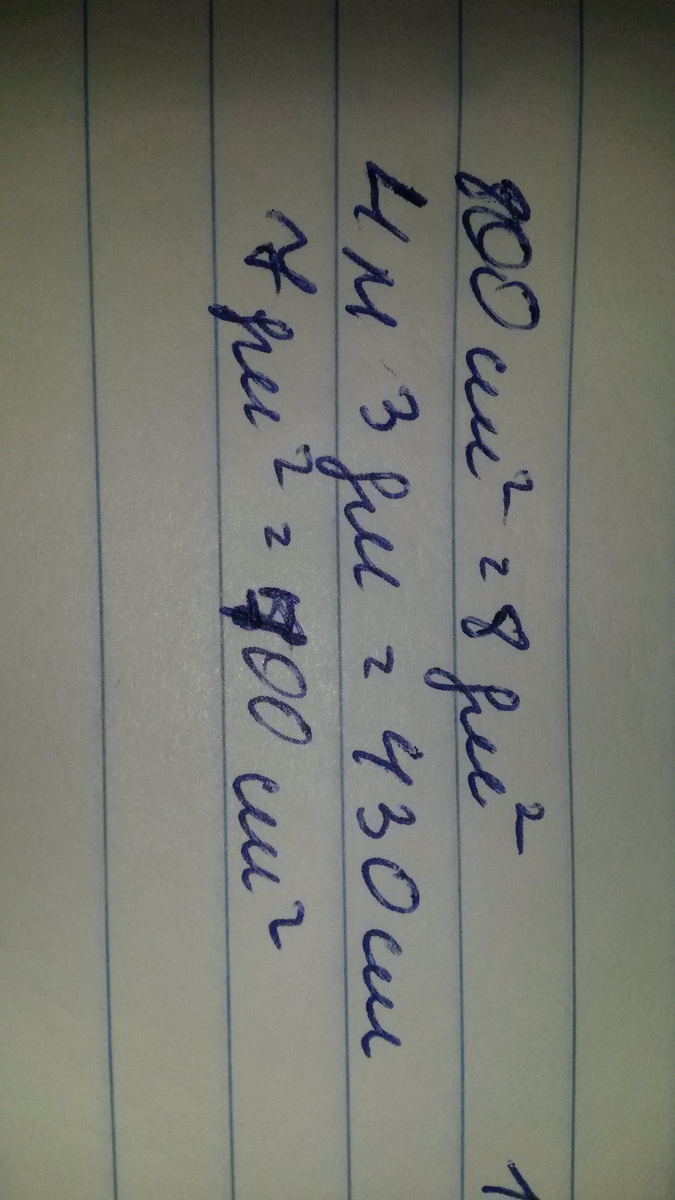 800 см² = 8 дм²
4 м 3 дм = 430 см
7 дм² = 700 см²